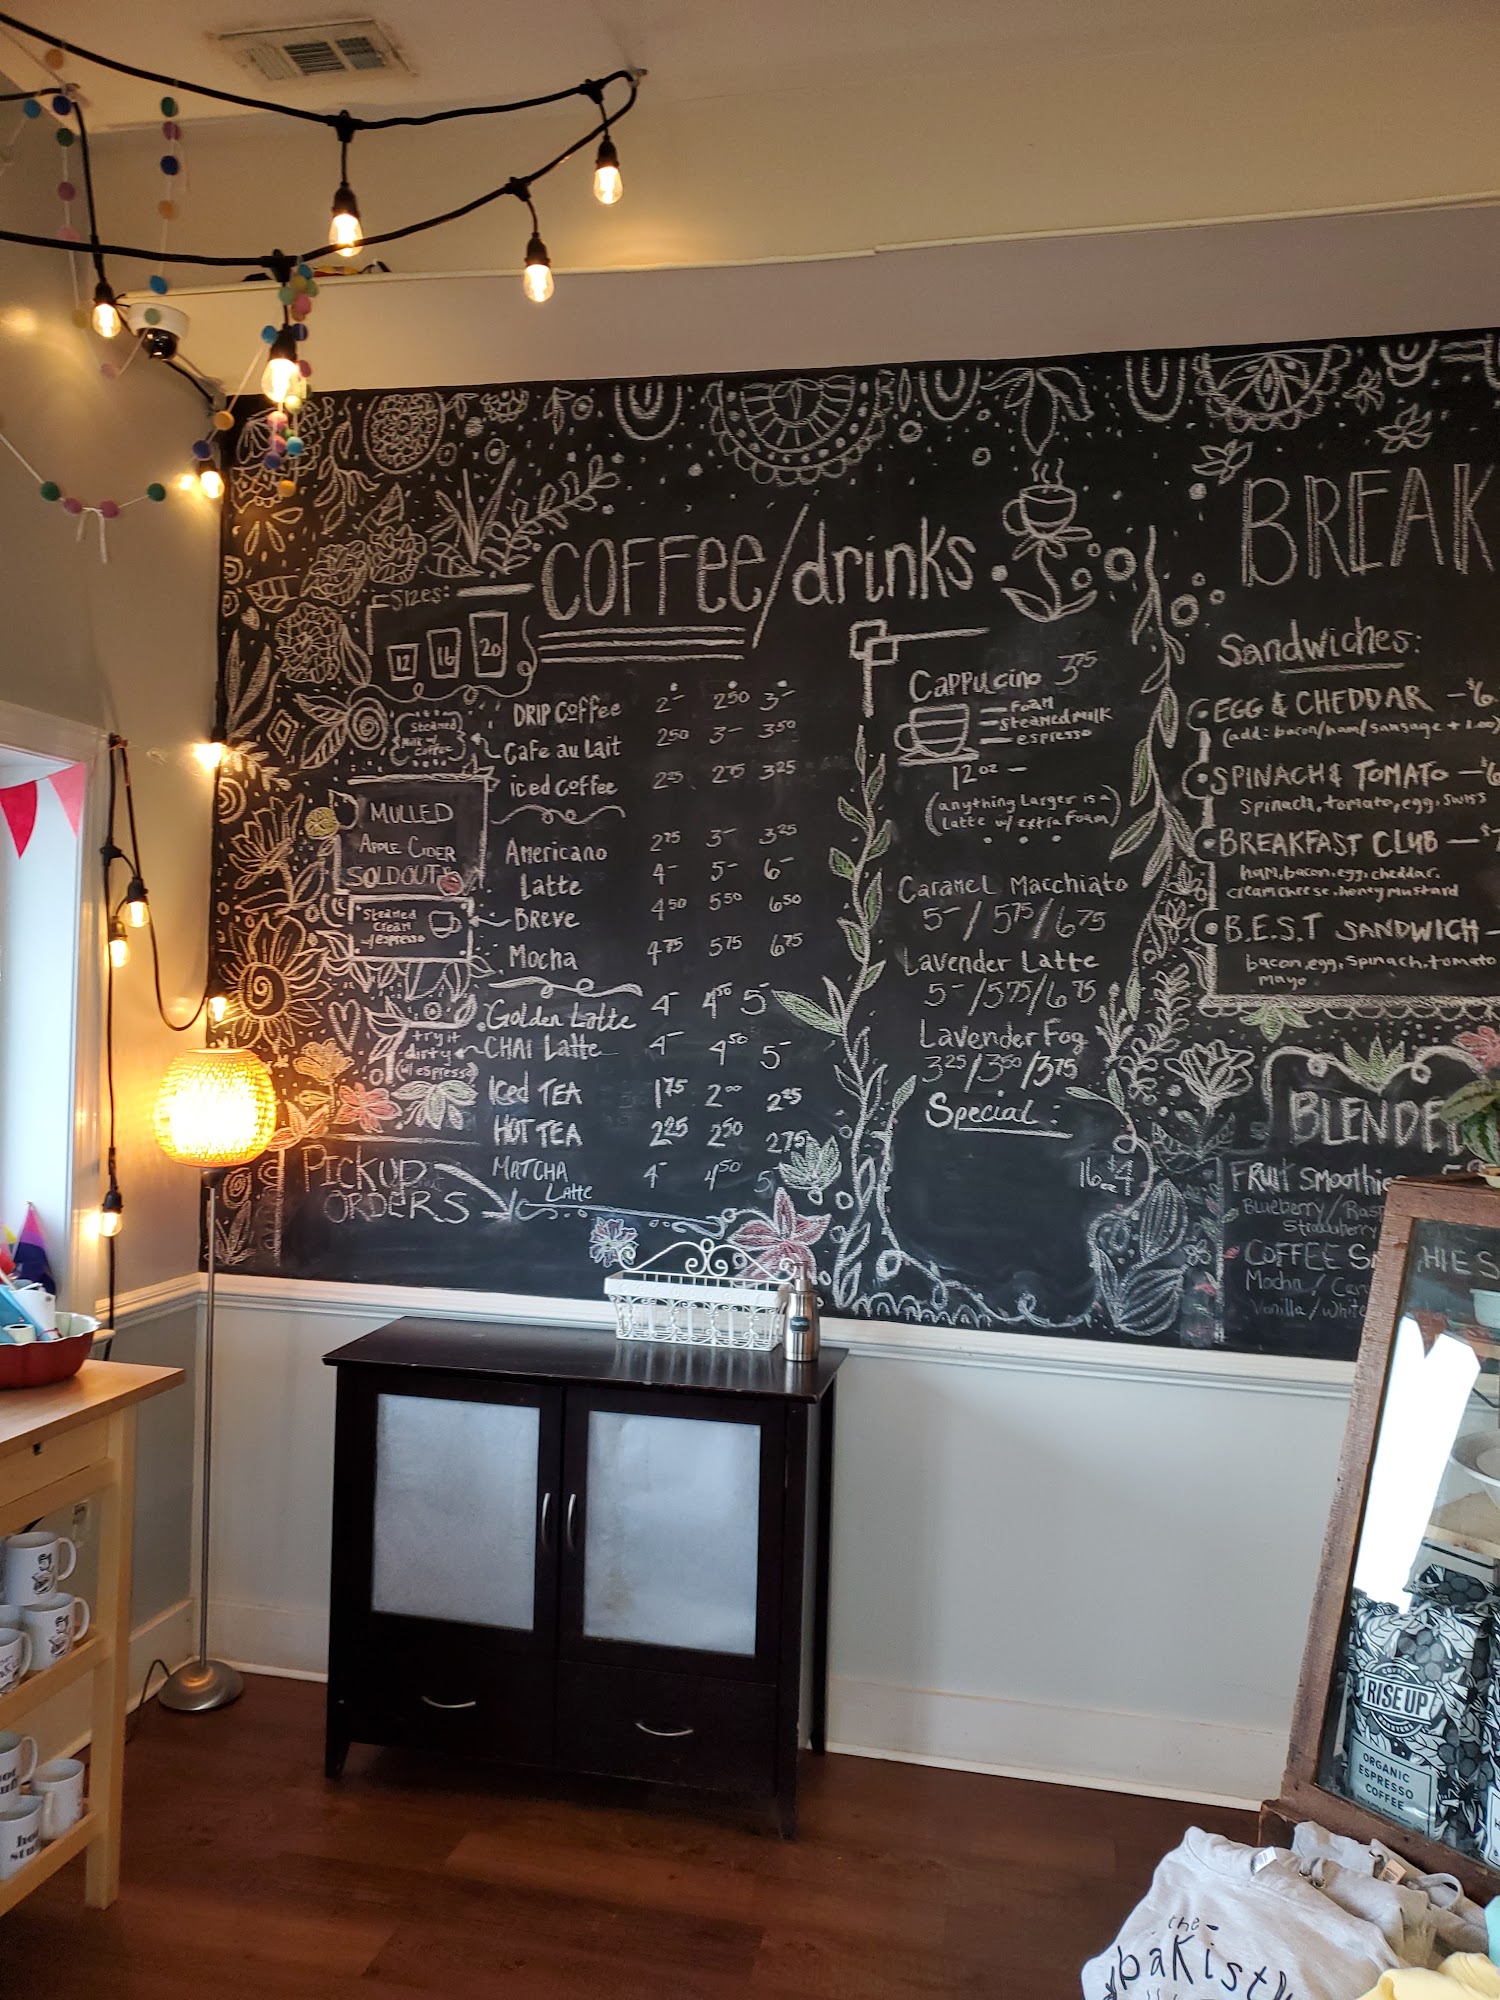 COFFee/drinks
Sizes:
12 16 20
DRIP COFFee 2- 250 3-
Steamed
Milk w/
Coffee
Cafe au Lait 250 3- 350
iced coffee 225 275 325
MULLED
APPLE CIDER
SOLD OUT
Americano 275 3- 325
Latte 4- 5- 6-
Steamed
Cream
w/espresso
BREVE 450 550 650
Mocha 475 575 675
Golden Latte 4- 450 5-
try it
dirty
(w/ espresso)
CHAI Latte 4- 450 5-
Iced TEA 175 200 225
HOT TEA 225 250 275
MATCHA
Latte 4- 450 5
PICKUP
ORDERS
Cappucino 375
FOAM
steamed milk
espresso
12oz -
(anything Larger is a
Latte w/ extra Foam)
Caramel Macchiato
5-/575/675
Lavender Latte
5-/575/675
Lavender Fog
325/350/375
Special:
16oz 4
BREAK
Sandwiches:
EGG & CHEDDAR - $6
(add: bacon/ham/sausage + 1.00)
SPINACH & TOMATO - $6
Spinach, tomato, egg, swiss
BREAKFAST CLUB - $7
ham, bacon, egg, cheddar,
cream cheese, honey mustard
B.E.S.T SANDWICH -
bacon, egg, spinach, tomato
mayo
BLENDE
FRUIT Smoothie
Blueberry/Rasp
Strawberry
COFFEE S HIES
Mocha/Car
Vanilla/White
COFFEE
RISE UP
ROASTERS
ORGANIC
ESPRESSO
COFFEE
hot
stuff
the
bakist